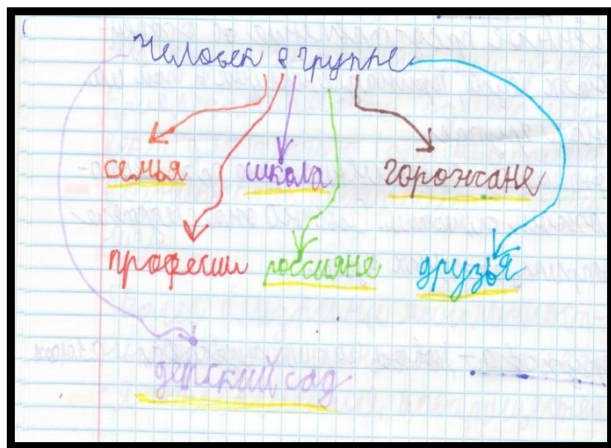 Человек в группе
семья школа горожане
професии россияне друзья
детский сад